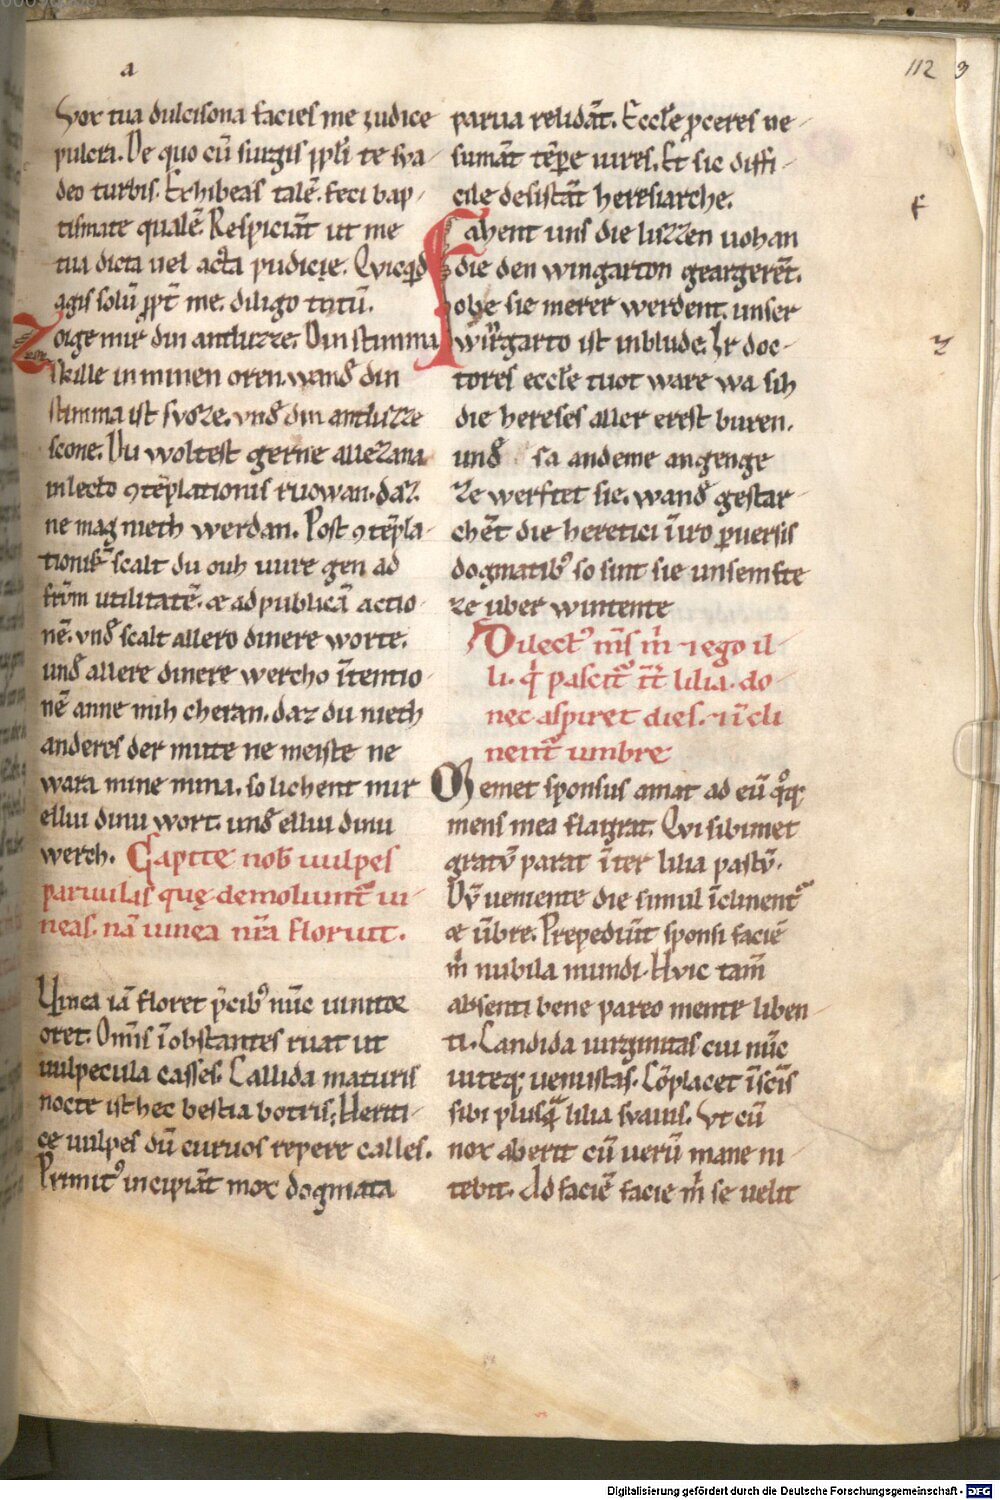 a
112
Vox tua dulcisona facies me iudice
pulcra. De quo cū surgis ppli te sua-
deo turbis. Exhibeas talē. feci bap-
tismate qualē. Respiciāt ut me
tua dicta uel acta pudicię. Quicqd
agis solū ppt me. diligo totū.
Zoige mir din antluzze. Din stimma
skille in minen oren. wand din
stimma ist svoze. vnd din antluzze
scone. Du woltest gerne allezana
in lecto 9tēplationis ruowan. daz
ne mag nieth werdan. Post 9tēpla-
tionis scalt du ouh uure gen ad
frm utilitatē. æ ad publicā actio-
nē. vnd scalt allero dinere worte.
und allere dinere wercho ītentio-
nē anne mih cheran. daz du nieth
anderes der mite ne meiste ne
wara mine mina. so lichent mir
elliu dinu wort. und elliu dinu
werch. Capite nob uulpes
paruulas quę demoliunt ui-
neas. nā uinea nra floruit.
Uinea iā floret pcib9 nūc uinitor
oret. Omīs īobstantes ruat ut
uulpecula casses. Callida maturis
nocte isthec bestia botris; Hereti-
ce uulpes dū curuos repere calles.
Primit9 incipiāt mox dogmata
parua relidāt. Eccle pceres ue-
sumāt tēpe uires. Et sic diffi-
cile desistāt heresiarche.
f
Fahent uns die luzzen uohan
die den wingarton geargerēt.
obe sie merer werdent. unser
wīgarto ist inblude. Ir doc-
z
tores eccle tuot ware wa sih
die hereses aller erest buren.
und sa andeme angenge
ze werftet sie. wand gestar-
chēt die heretici īiro puersis
dogmatib9 so sint sie unsemfte
ze uber wintente
Dilect9 ms m 7 ego il-
li. q pascit īt lilia. do-
nec aspiret dies. 7 īcli
nent umbre
Memet sponsus amat ad eū qq
mens mea flagrat. Qui sibimet
gratū parat īter lilia pastū.
Dū ueniente die simul īclinent
æ ūbre. Prepediūt sponsi faciē
m nubila mundi. Huic tam
absenti bene pareo mente liben-
ti. Candida uirginitas cui nūc
uiteq uenustas. Cōplacet īscīs
sibi plusq lilia svauis. Ut cū
nox aberit cū uerū mane ni-
tebit. Ad faciē facie m se uelit
Digitalisierung gefördert durch die Deutsche Forschungsgemeinschaft - DFG